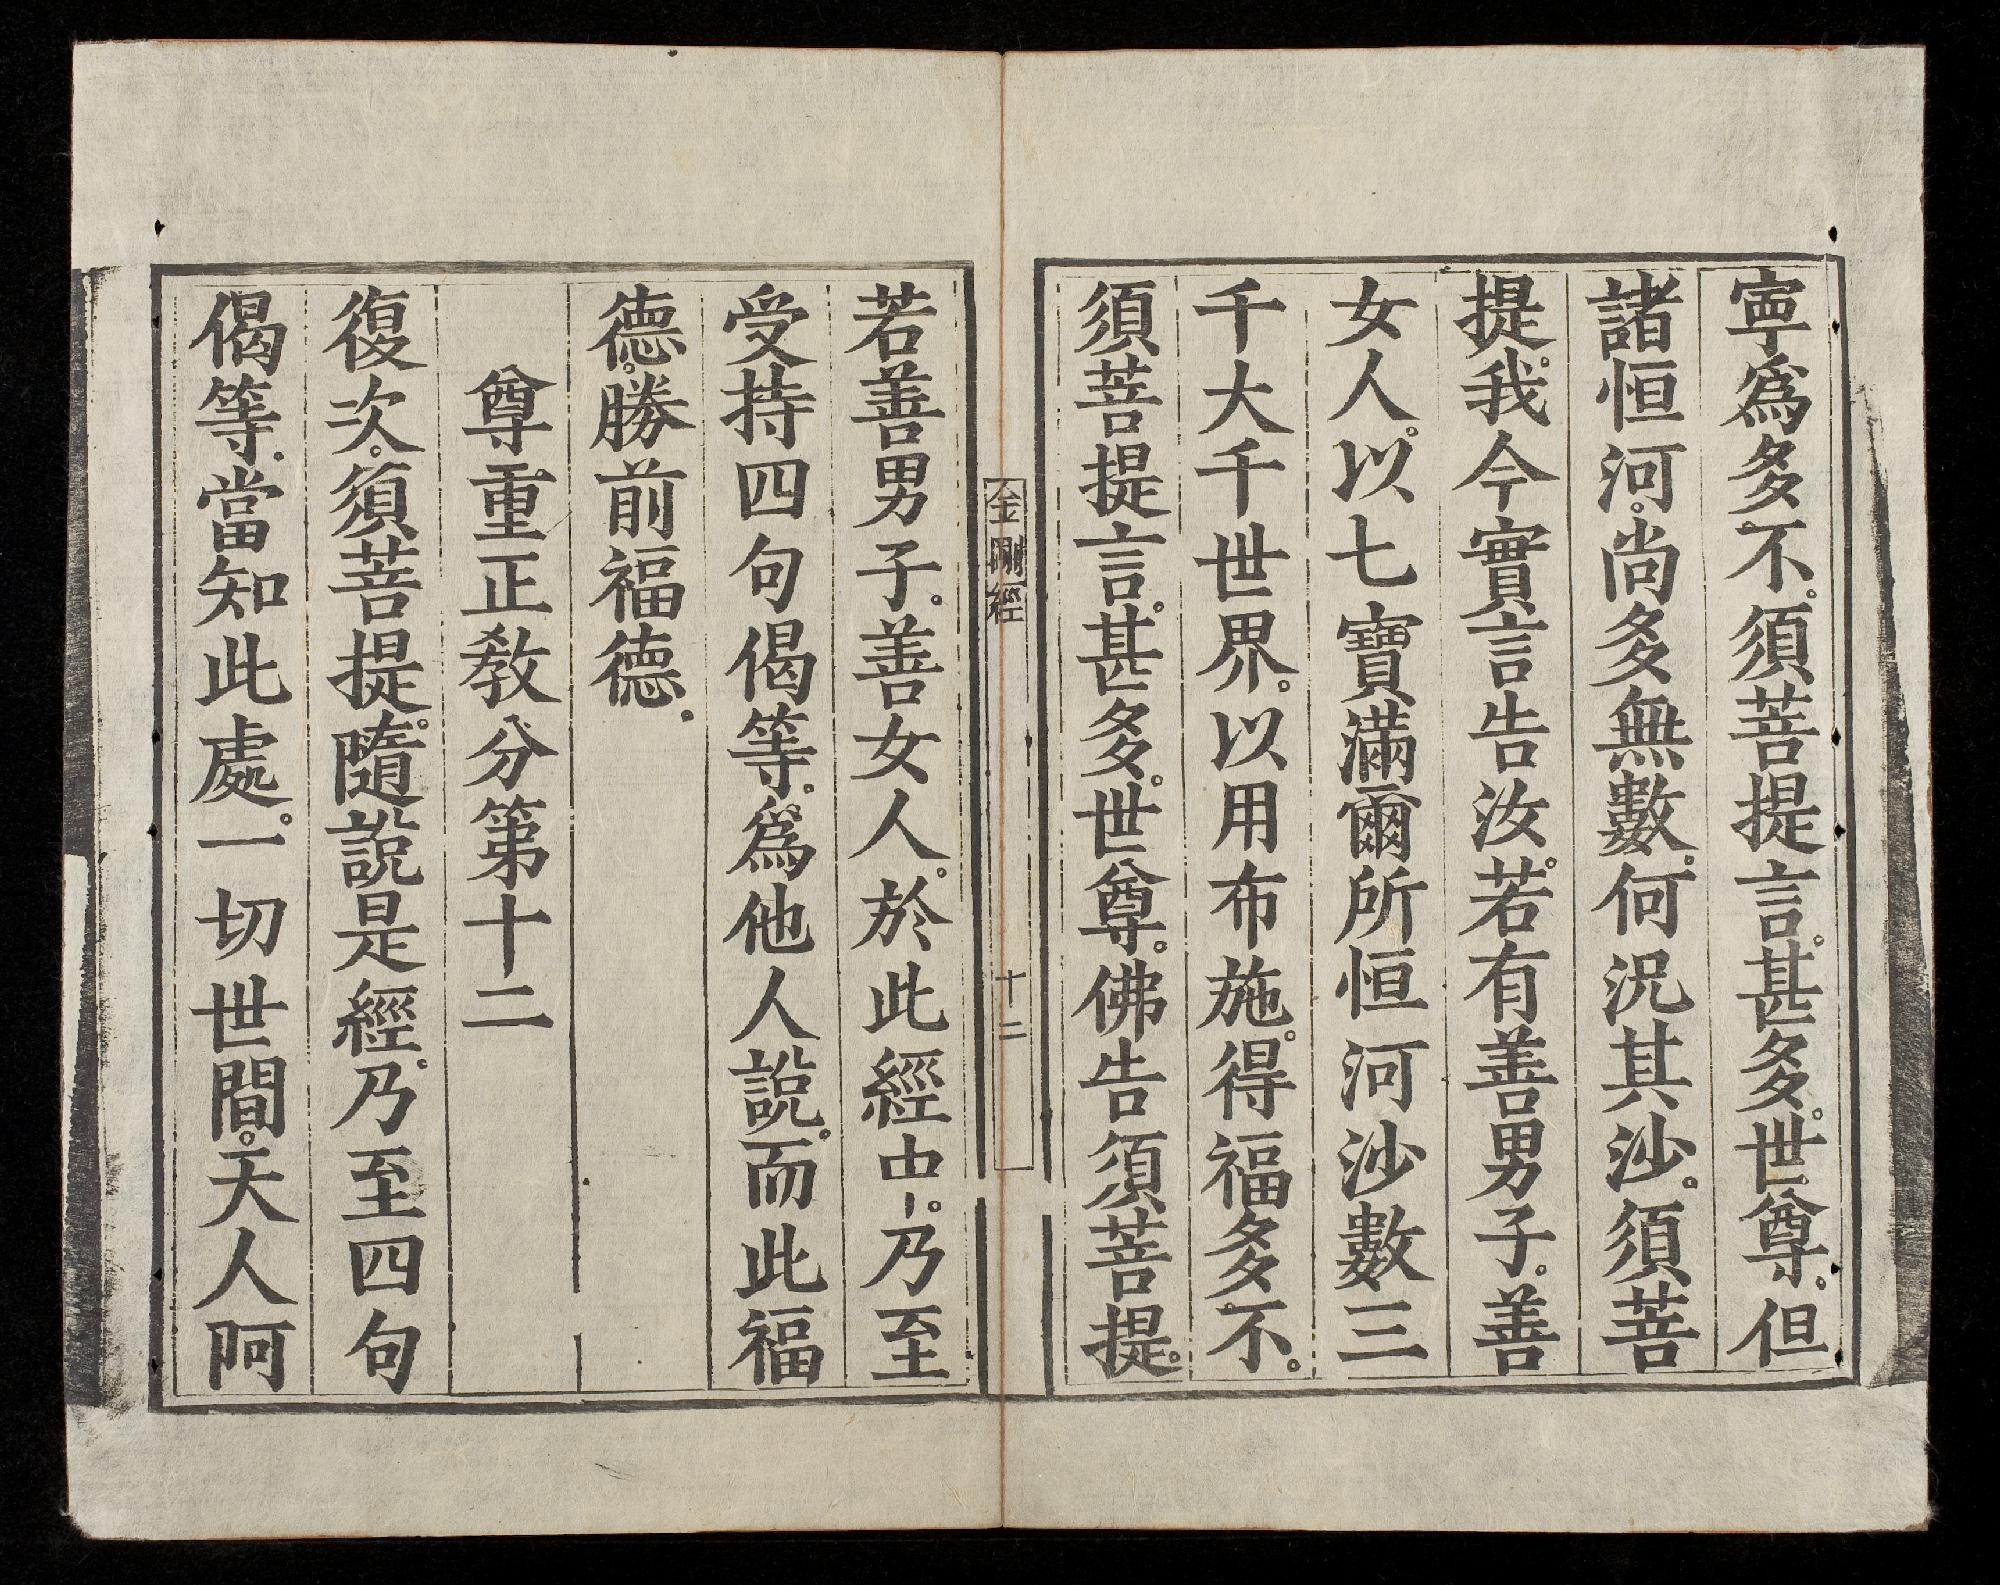 寧爲多不。須菩提言。甚多。世尊。但
諸恒河。尚多無數。何況其沙。須菩
提。我今實言告汝。若有善男子。善
女人。以七寶滿爾所恒河沙數三
千大千世界。以用布施。得福多不。
須菩提言。甚多。世尊。佛告須菩提。
金剛經
十二
若善男子。善女人。於此經中。乃至
受持四句偈等。爲他人說。而此福
德。勝前福德。
尊重正敎分第十二
復次。須菩提。隨說是經。乃至四句
偈等。當知此處。一切世間。天人阿